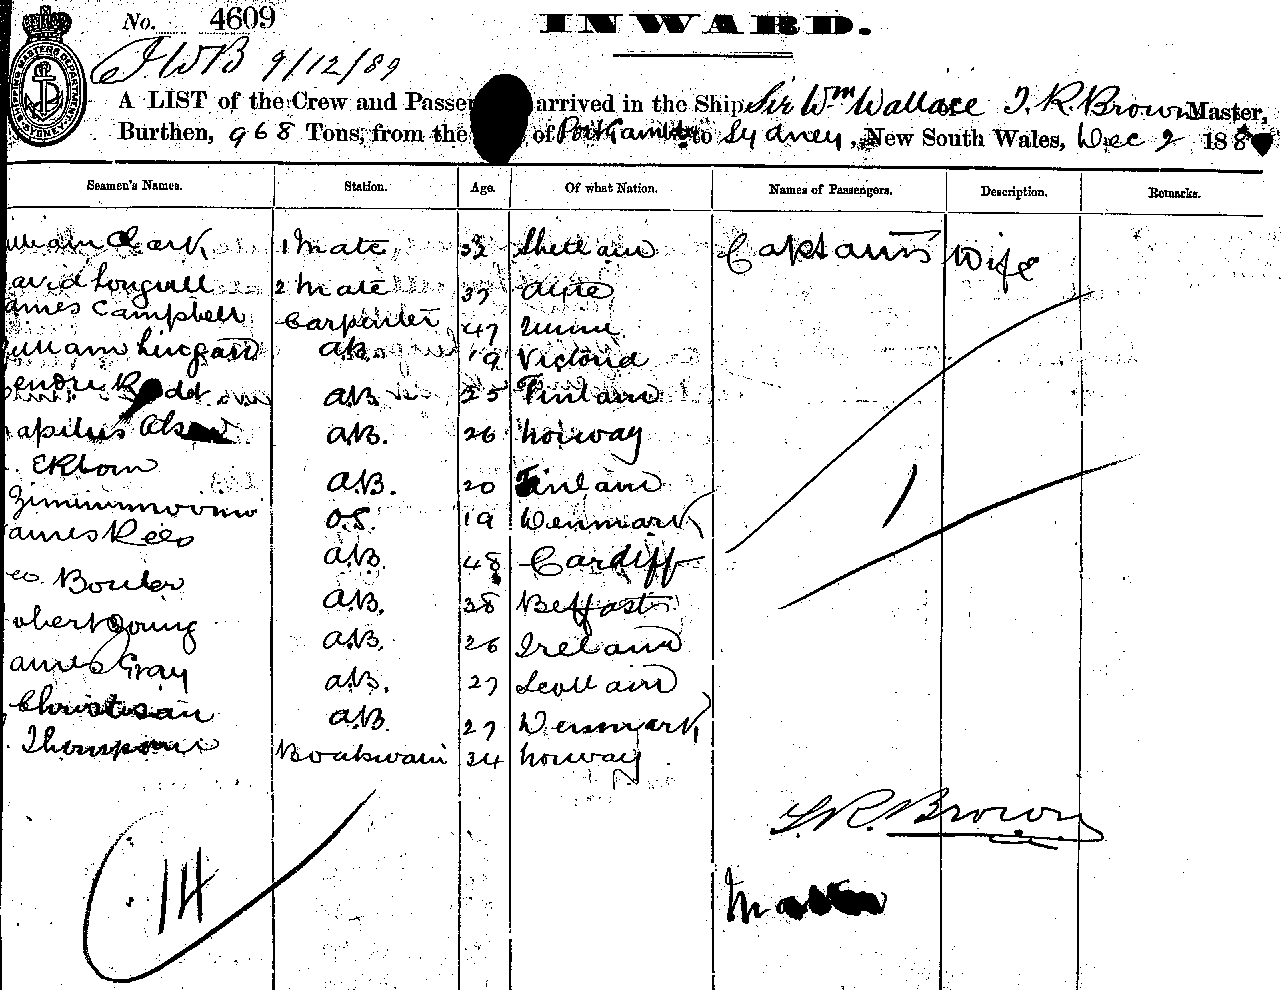 No. 4609 INWARD.
J.W.B 9/12/89
A LIST of the Crew and Passen arrived in the Ship Sir Wm Wallace J. R. Brown Master,
Burthen, 968 Tons, from the of Port Gamble to Sydney, New South Wales, Dec 9 188
Seamen's Names. Station. Age. Of what Nation. Names of Passengers. Description. Remarks.
illiam Clark 1 Mate Captains Wife
avid 2 Mate
ames Campbell Carpenter 47
illiam AB 19 Victoria
AB 25 Finland
AB. 26 Norway
Ekbom A.B. 20 Finland
O.S. 19 Denmark
ames Rees A.B. 48 Cardiff
A.B. 38 Belfast
obert Young A.B. 26 Ireland
ames Gray A.B. 27 Scotland
Christian A.B. 27 Denmark
Thompson Boatswain 34 Norway
J. R. Brown
14
Master